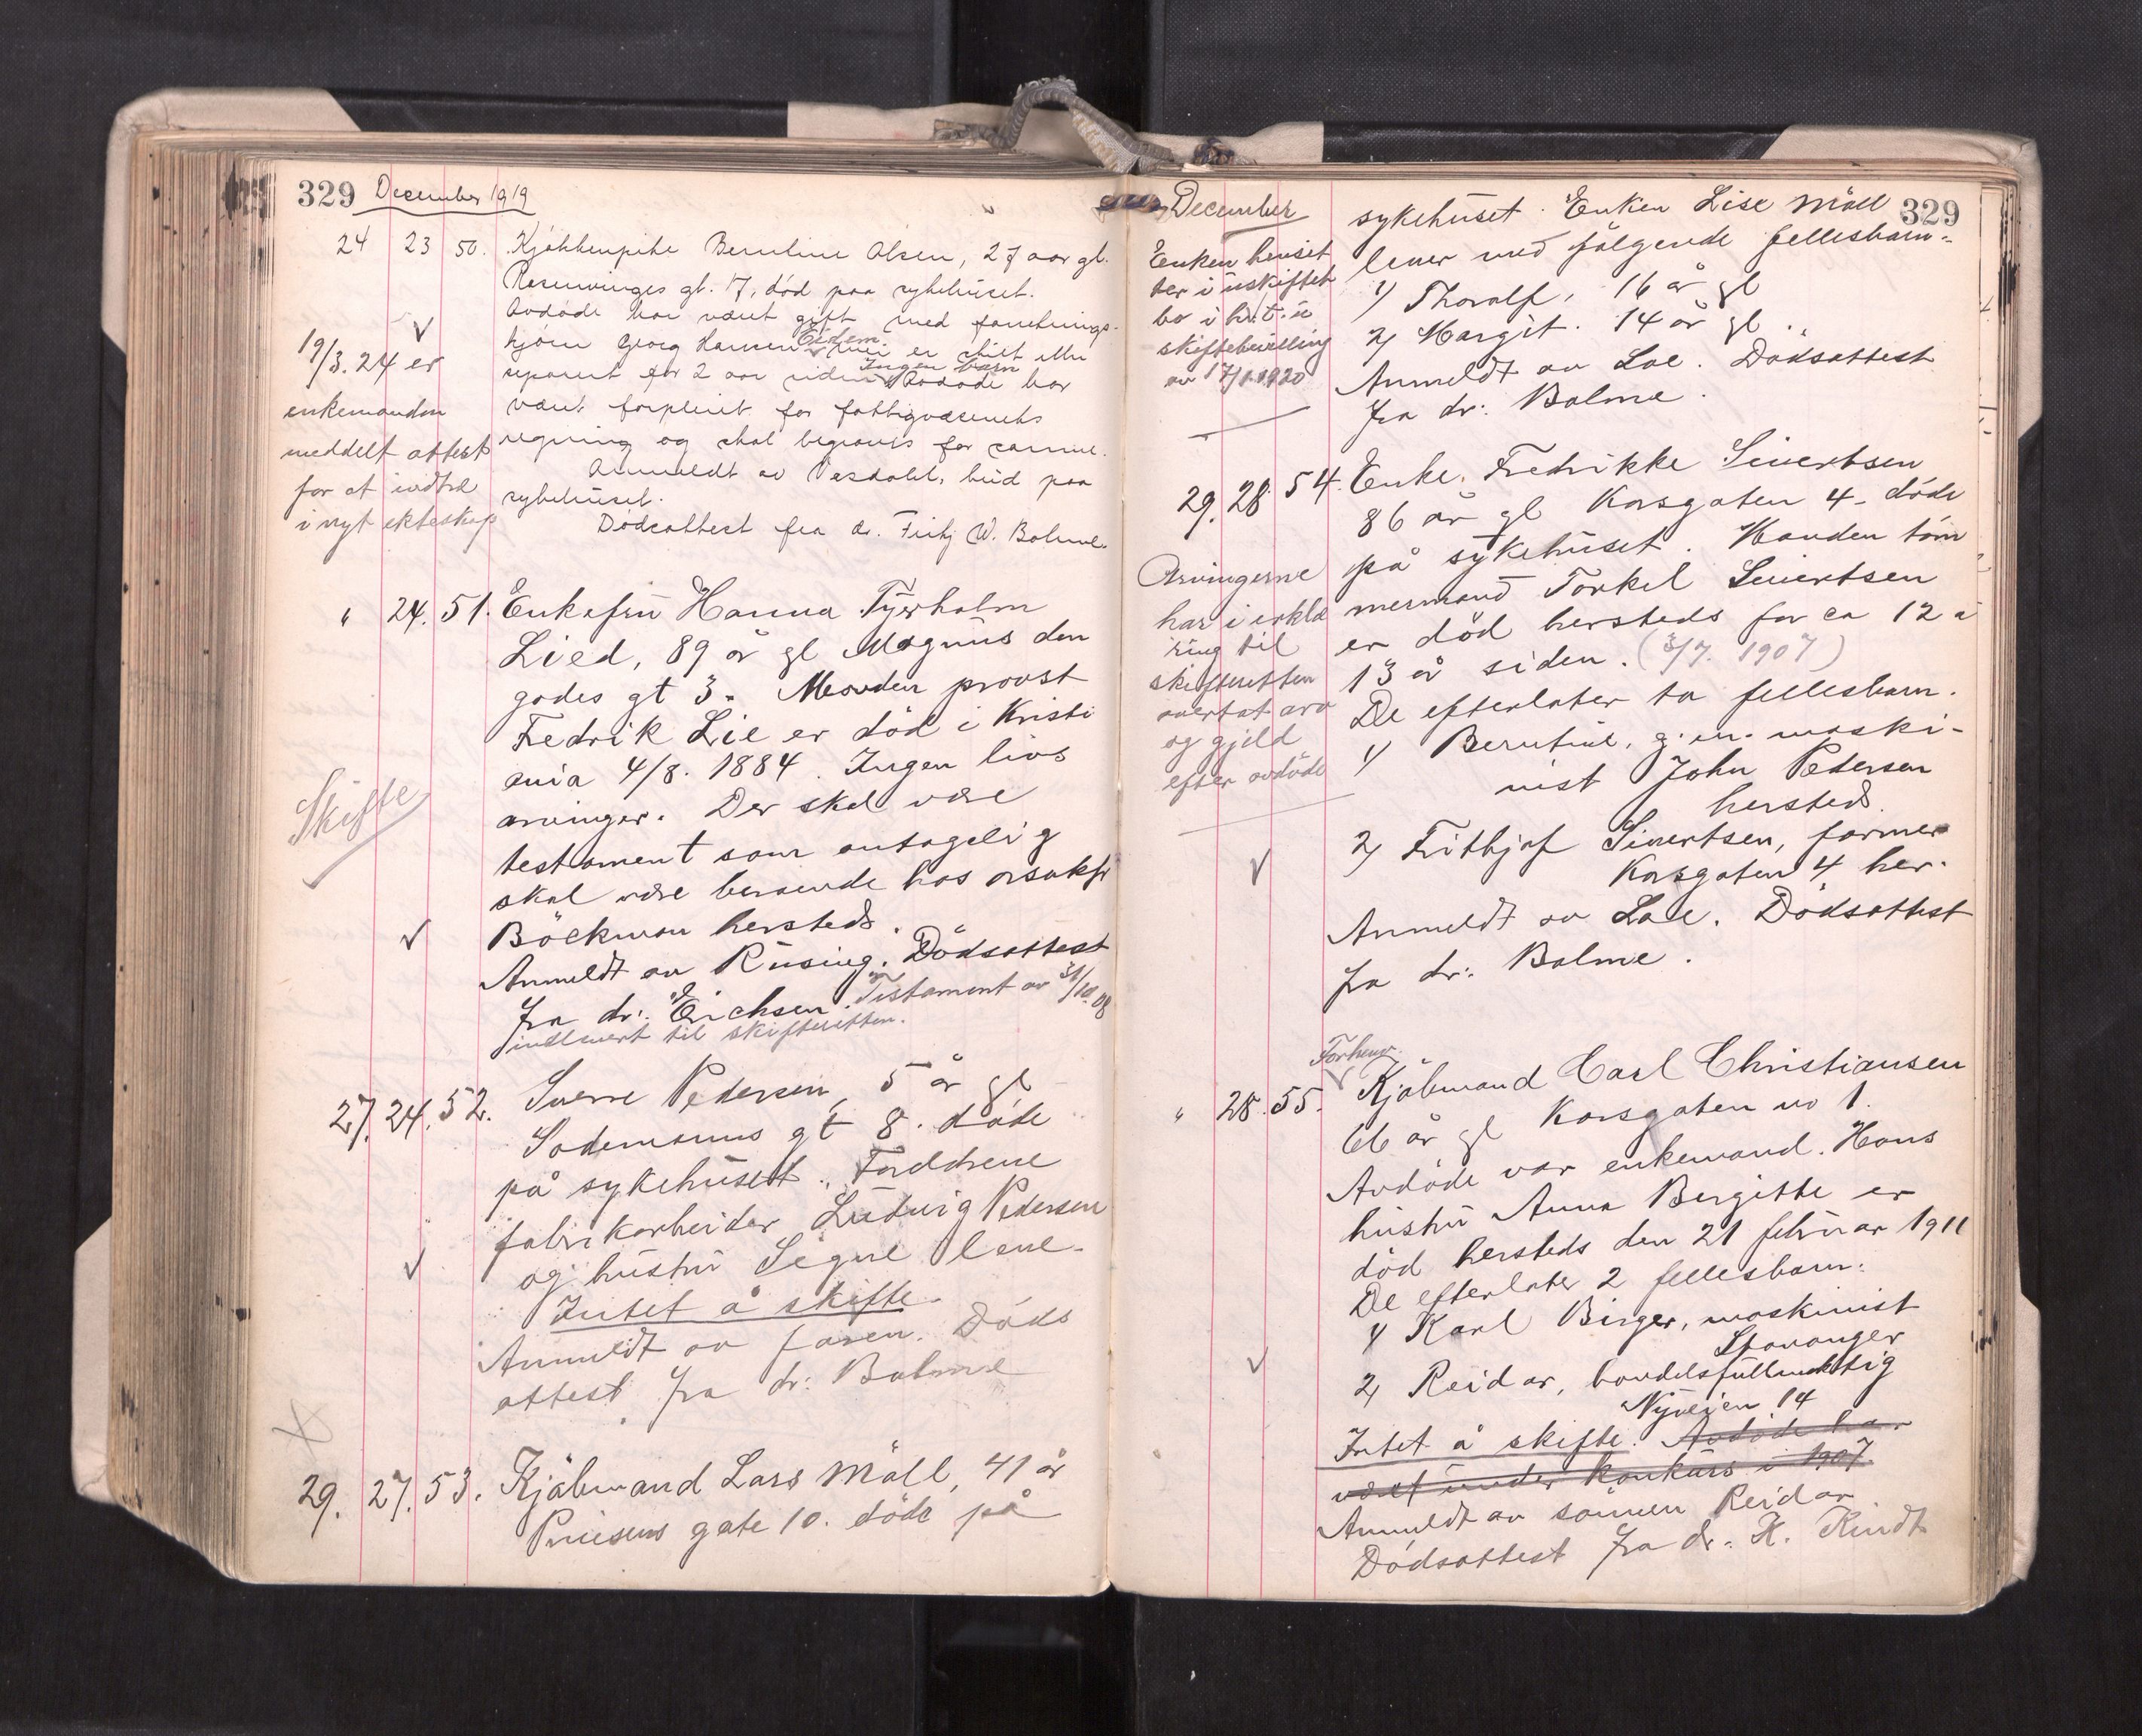 329 December 1919
24 23 50. Kjøkkenpike Berntine Olsen, 27 aar gl.
Rosenvinges gt. 7, død paa sykehuset.
Avdøde har været gift med forretnings-
bjørn Georg Hansen Eidem men er skilt eller
separert for 2 aar siden. Ingen barn Avdøde har
været forpleiet for fattigvæsenets
regning og skal begraves for samme.
Anmeldt av Vesdahl, bud paa
sykehuset.
Dødsattest fra dr. Fritz W. Bolme.
√
19/3. 24 er
enkemanden
meddelt attest
for at indtræ
i nyt ekteskap
" 24. 51. Enkefru Hanna Tyrholm
Lied, 89 år gl Magnus den
godes gt 3. Manden provst
Fredrik Lie er död i Kristi
ania 4/8. 1884. Ingen livs
arvinger. Der skal være
testament som antagelig
skal være beroende hos orsakfr
Böckman hersteds.
Anmeldt av Rusing. Dödsattest
fra dr: Erichsen. Testament av 31/10.08
indlevert til skifteretten.
Skifte
√
27. 24. 52. Sverre Pedersen, 5 år gl
Sademanns gt 8. döde
på sykehuset. Foreldrene
fabrikarbeider Ludvig Pedersen
og hustru Signe lever.
Intet å skifte.
Anmeldt av faren. Döds
attest fra dr: Bolme
√
X
29. 27. 53. Kjöbmand Lars Möll, 41 år
Prinsens gate 10. döde på
December 329
sykehuset. Enken Lise Möll
lever med fölgende fellesbarn:
1) Thoralf, 16 år gl
2) Margit. 14 år gl ..
Anmeldt av Loe. Dödsattest
fra dr: Bolme.
Enken henset
ter i uskiftet
bo i h.t. u
skiftebevilling
av 17/1.1920
29. 28. 54. Enke Fredrikke Sivertsen
86 år gl Korsgaten 4. döde
på sykehuset. Manden töm
mermand Torkel Sivertsen
er död hersteds for ca 12 à
13 år siden. (3/7. 1907)
De efterlater to fellesbarn.
1) Berntine, g.m. maski-
nist John Pedersen
hersteds.
2) Frithjof Sivertsen, former
Korsgaten 4 her.
Anmeldt av Loe. Dödsattest
fra dr: Bolme.
Arvingerne
har i erklæ
ring til
skifteretten
overtat arv
og gjeld
efter avdöde
√
" 28. 55. Forhenv. Kjöbmand Carl Christiansen
66 år gl Korsgaten no 1.
Avdöde var enkemand. Hans
hustru Anna Bergitte er
död hersteds den 21 februar 1911
De efterlater 2 fellesbarn:
1) Karl Birger, maskinist
Stavanger
2) Reidar, handelsfullmektig
Nyveien 14
Intet å skifte. Avdöde har
været under konkurs i 1907.
Anmeldt av sönnen Reidar
Dödsattest fra dr. K. Rindt
√